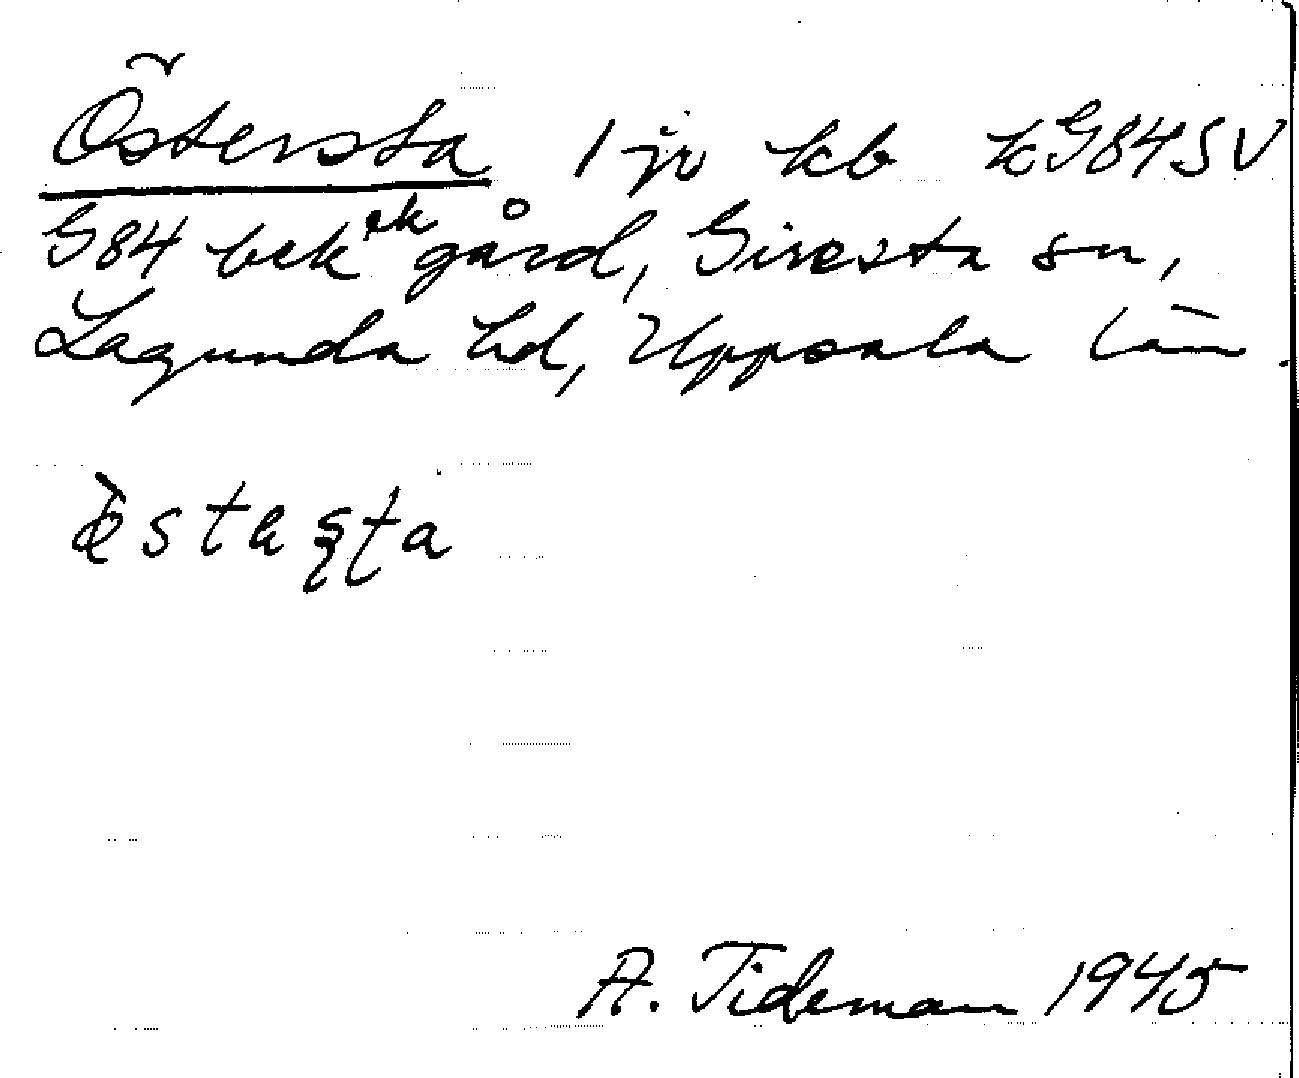 Östersta 1 jv kb kG84SV
G84 bek ek gård, Giresta sn,
Lagunda hd, Uppsala län.
A. Tideman 1945